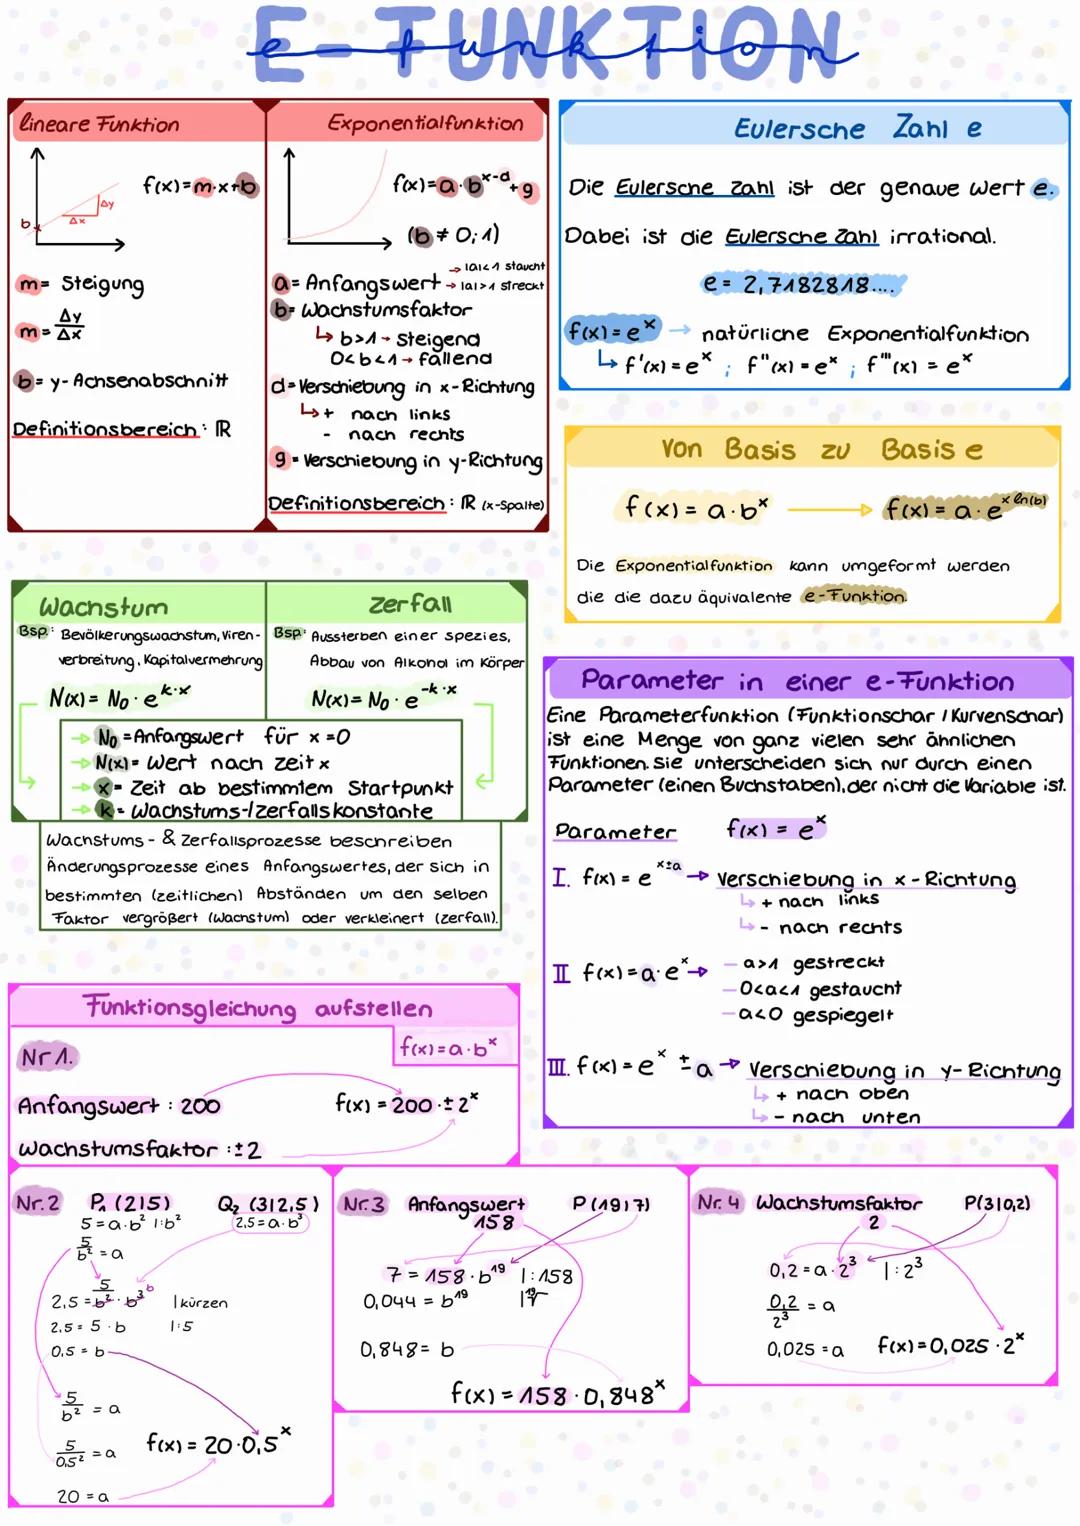 E-FUNKTION
e-funktion
lineare Funktion
f(x)=m·x+b
b
Δy
Δx
m= Steigung
m= Δy/Δx
b= y-Achsenabschnitt
Definitionsbereich: ℝ
Exponentialfunktion
f(x)=a·b^(x-d)+g
(b ≠ 0;1)
a= Anfangswert → |a|<1 staucht
→ |a|>1 streckt
b= Wachstumsfaktor
↳ b>1 → steigend
0<b<1 → fallend
d=Verschiebung in x-Richtung
↳ + nach links
- nach rechts
g= Verschiebung in y-Richtung
Definitionsbereich: ℝ (x-Spalte)
Eulersche Zahl e
Die Eulersche Zahl ist der genaue Wert e.
Dabei ist die Eulersche Zahl irrational.
e = 2,7182818....
f(x)=e^x → natürliche Exponentialfunktion
↳ f'(x)=e^x ; f''(x)=e^x ; f'''(x) = e^x
Von Basis zu Basis e
f(x)= a·b^x → f(x)= a·e^(x ln(b))
Die Exponentialfunktion kann umgeformt werden
die die dazu äquivalente e-Funktion.
Wachstum
Bsp: Bevölkerungswachstum, Viren-
verbreitung, Kapitalvermehrung
N(x)= N₀·e^(k·x)
Zerfall
Bsp: Aussterben einer Spezies,
Abbau von Alkohol im Körper
N(x)= N₀·e^(-k·x)
→ N₀ =Anfangswert für x=0
→ N(x)= Wert nach Zeit x
→ x= Zeit ab bestimmtem Startpunkt
→ k= Wachstums-/Zerfallskonstante
Wachstums- & Zerfallsprozesse beschreiben
Änderungsprozesse eines Anfangswertes, der sich in
bestimmten (zeitlichen) Abständen um den selben
Faktor vergrößert (Wachstum) oder verkleinert (Zerfall).
Parameter in einer e-Funktion
Eine Parameterfunktion (Funktionschar / Kurvenschar)
ist eine Menge von ganz vielen sehr ähnlichen
Funktionen. Sie unterscheiden sich nur durch einen
Parameter (einen Buchstaben), der nicht die Variable ist.
Parameter f(x) = e^x
I. f(x)= e^(x±a) → Verschiebung in x-Richtung
↳ + nach links
↳ - nach rechts
II f(x)=a·e^x → - a>1 gestreckt
- 0<a<1 gestaucht
- a<0 gespiegelt
III. f(x)=e^x ± a → Verschiebung in y-Richtung
↳ + nach oben
↳ - nach unten
Funktionsgleichung aufstellen
f(x)=a·b^x
Nr 1.
Anfangswert : 200 f(x)=200·±2^x
Wachstumsfaktor :±2
Nr. 2 P₁ (2|5) Q₂ (3|2,5)
5=a·b² |:b² 2,5=a·b³
5/b² = a
2,5 = 5/b² · b³ b |kürzen
2,5 = 5·b |:5
0,5 = b
5/b² = a
5/0,5² = a
f(x)= 20·0,5^x
20 = a
Nr. 3 Anfangswert P(19|7)
158
7 = 158·b^19 |:158
0,044 = b^19 |19√
0,848= b
f(x)=158·0,848^x
Nr. 4 Wachstumsfaktor P(3|0,2)
2
0,2=a·2³ |:2³
0,2/2³ = a
0,025 =a f(x)=0,025·2^x